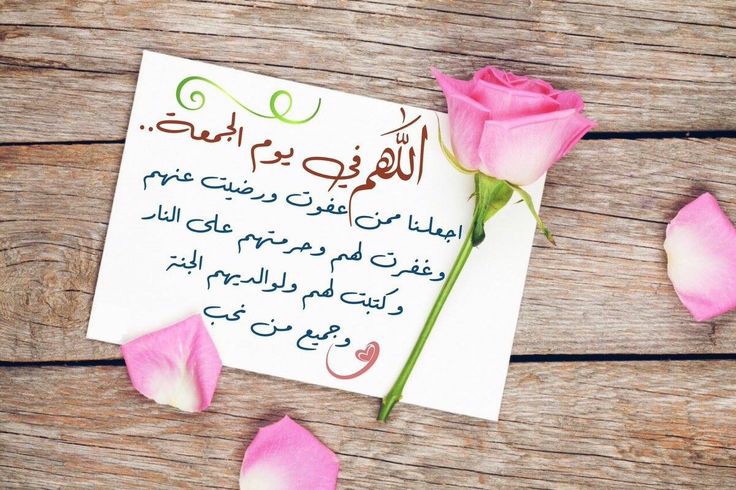 اللهم في يوم الجمعة..
اجعلنا ممن عفوت ورضيت عنهم
وغفرت لهم وحرمتهم على النار
وكتبت لهم ولوالديهم الجنة
وجميع من نحب